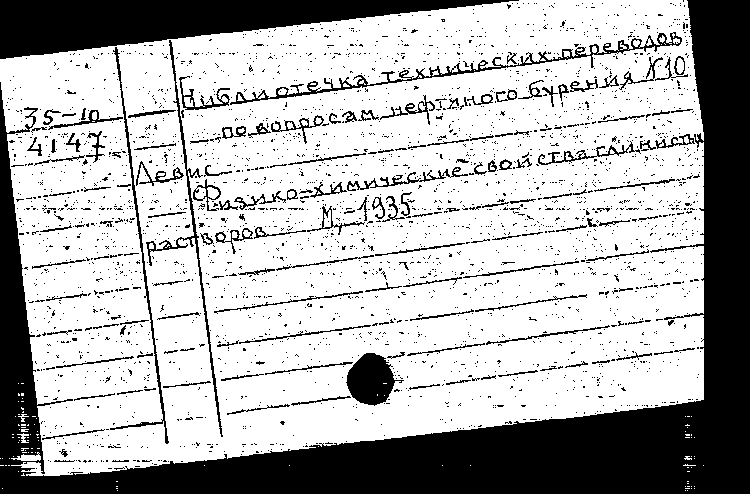 35-10
4147
Библиотечка технических переводов
по вопросам нефтяного бурения №10
Левис
Физико-химические свойства глинистых
растворов М,-1935